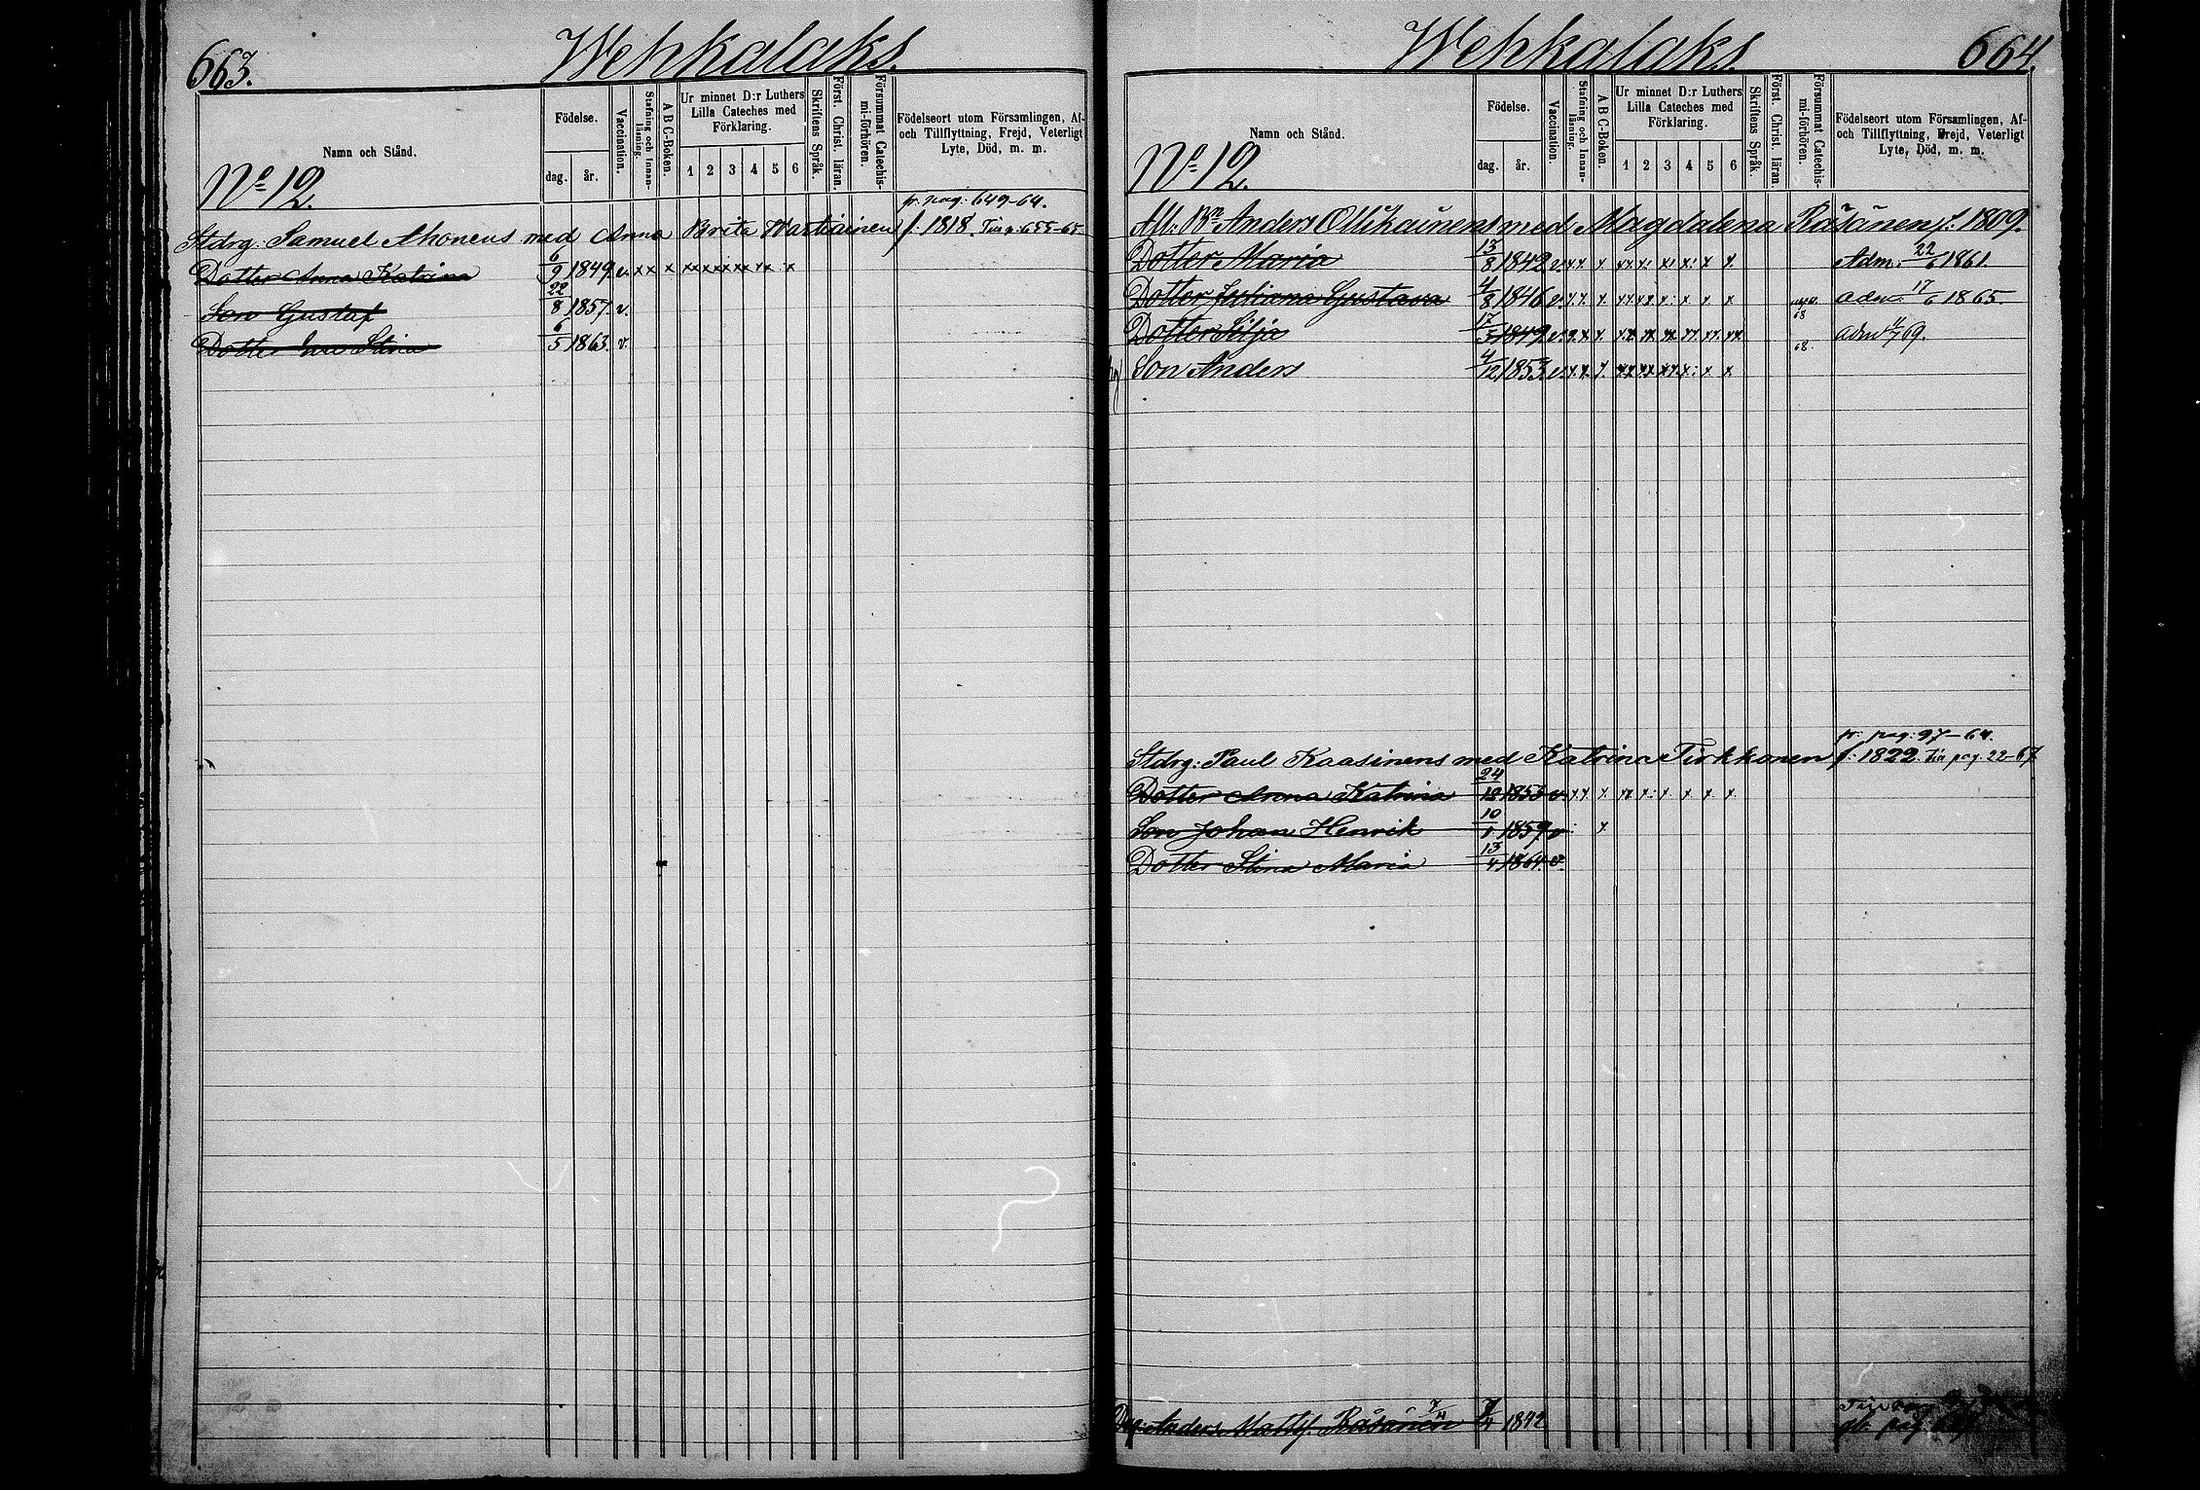 663.
Wehkalaks.
Namn och Stånd.
Födelse.
dag.
år.
Vaccination.
Stafning och Innanläsning.
A B C-Boken.
Ur minnet D:r Luthers Lilla Cateches med Förklaring.
1 2 3 4 5 6
Skriftens Språk.
Först. Christ. läran.
Försummat Catechismi-förhören.
Födelseort utom Församlingen, Af- och Tillflyttning, Frejd, Veterligt Lyte, Död, m. m.
No 12.
fr. pag: 649-64.
Stdrg: Samuel Ahonens med Anna Brita Hartikainen f. 1818. Tin p: 655-65
Dotter Anna Katrina 6/9 1849 v. x x x xx xx xx xx x
Son Gustaf 22/8 1857. v.
Dotter Eva Stina 6/5 1863. v.
Wehkalaks.
664.
Namn och Stånd.
Födelse.
dag.
år.
Vaccination.
Stafning och Innanläsning.
A B C-Boken.
Ur minnet D:r Luthers Lilla Cateches med Förklaring.
1 2 3 4 5 6
Skriftens Språk.
Först. Christ. läran.
Försummat Catechismi-förhören.
Födelseort utom Församlingen, Af- och Tillflyttning, Frejd, Veterligt Lyte, Död, m. m.
No 12.
Afl: Bn Anders Ollikainens med Magdalena Räsänen f. 1809.
Dotter Maria 13/8 1842 v. x x x x x x x x x Adm. 22/6 1861.
Dotter Juliana Gustava 4/8 1846 v. x x x x x x x x x 68 adm. 17/6 1865.
Dotter Silja 17/5 1849 v. x x x xx xx xx xx xx 68. adm 69.
Son Anders 4/12 1853 v. x x x xx xx xx x x x
fr. pag: 97-64.
Stdrg: Paul Kaasinens med Katrina Tirkkonen f. 1822. Tin pag. 22-67
Dotter Anna Katrina 24/12 1855 v. x x x x x x x x x
Son Johan Henrik 10/1 1859 v. x
Dotter Stina Maria 13/4 1864. v.
Anders Matts. Räsänen 7/4 1842